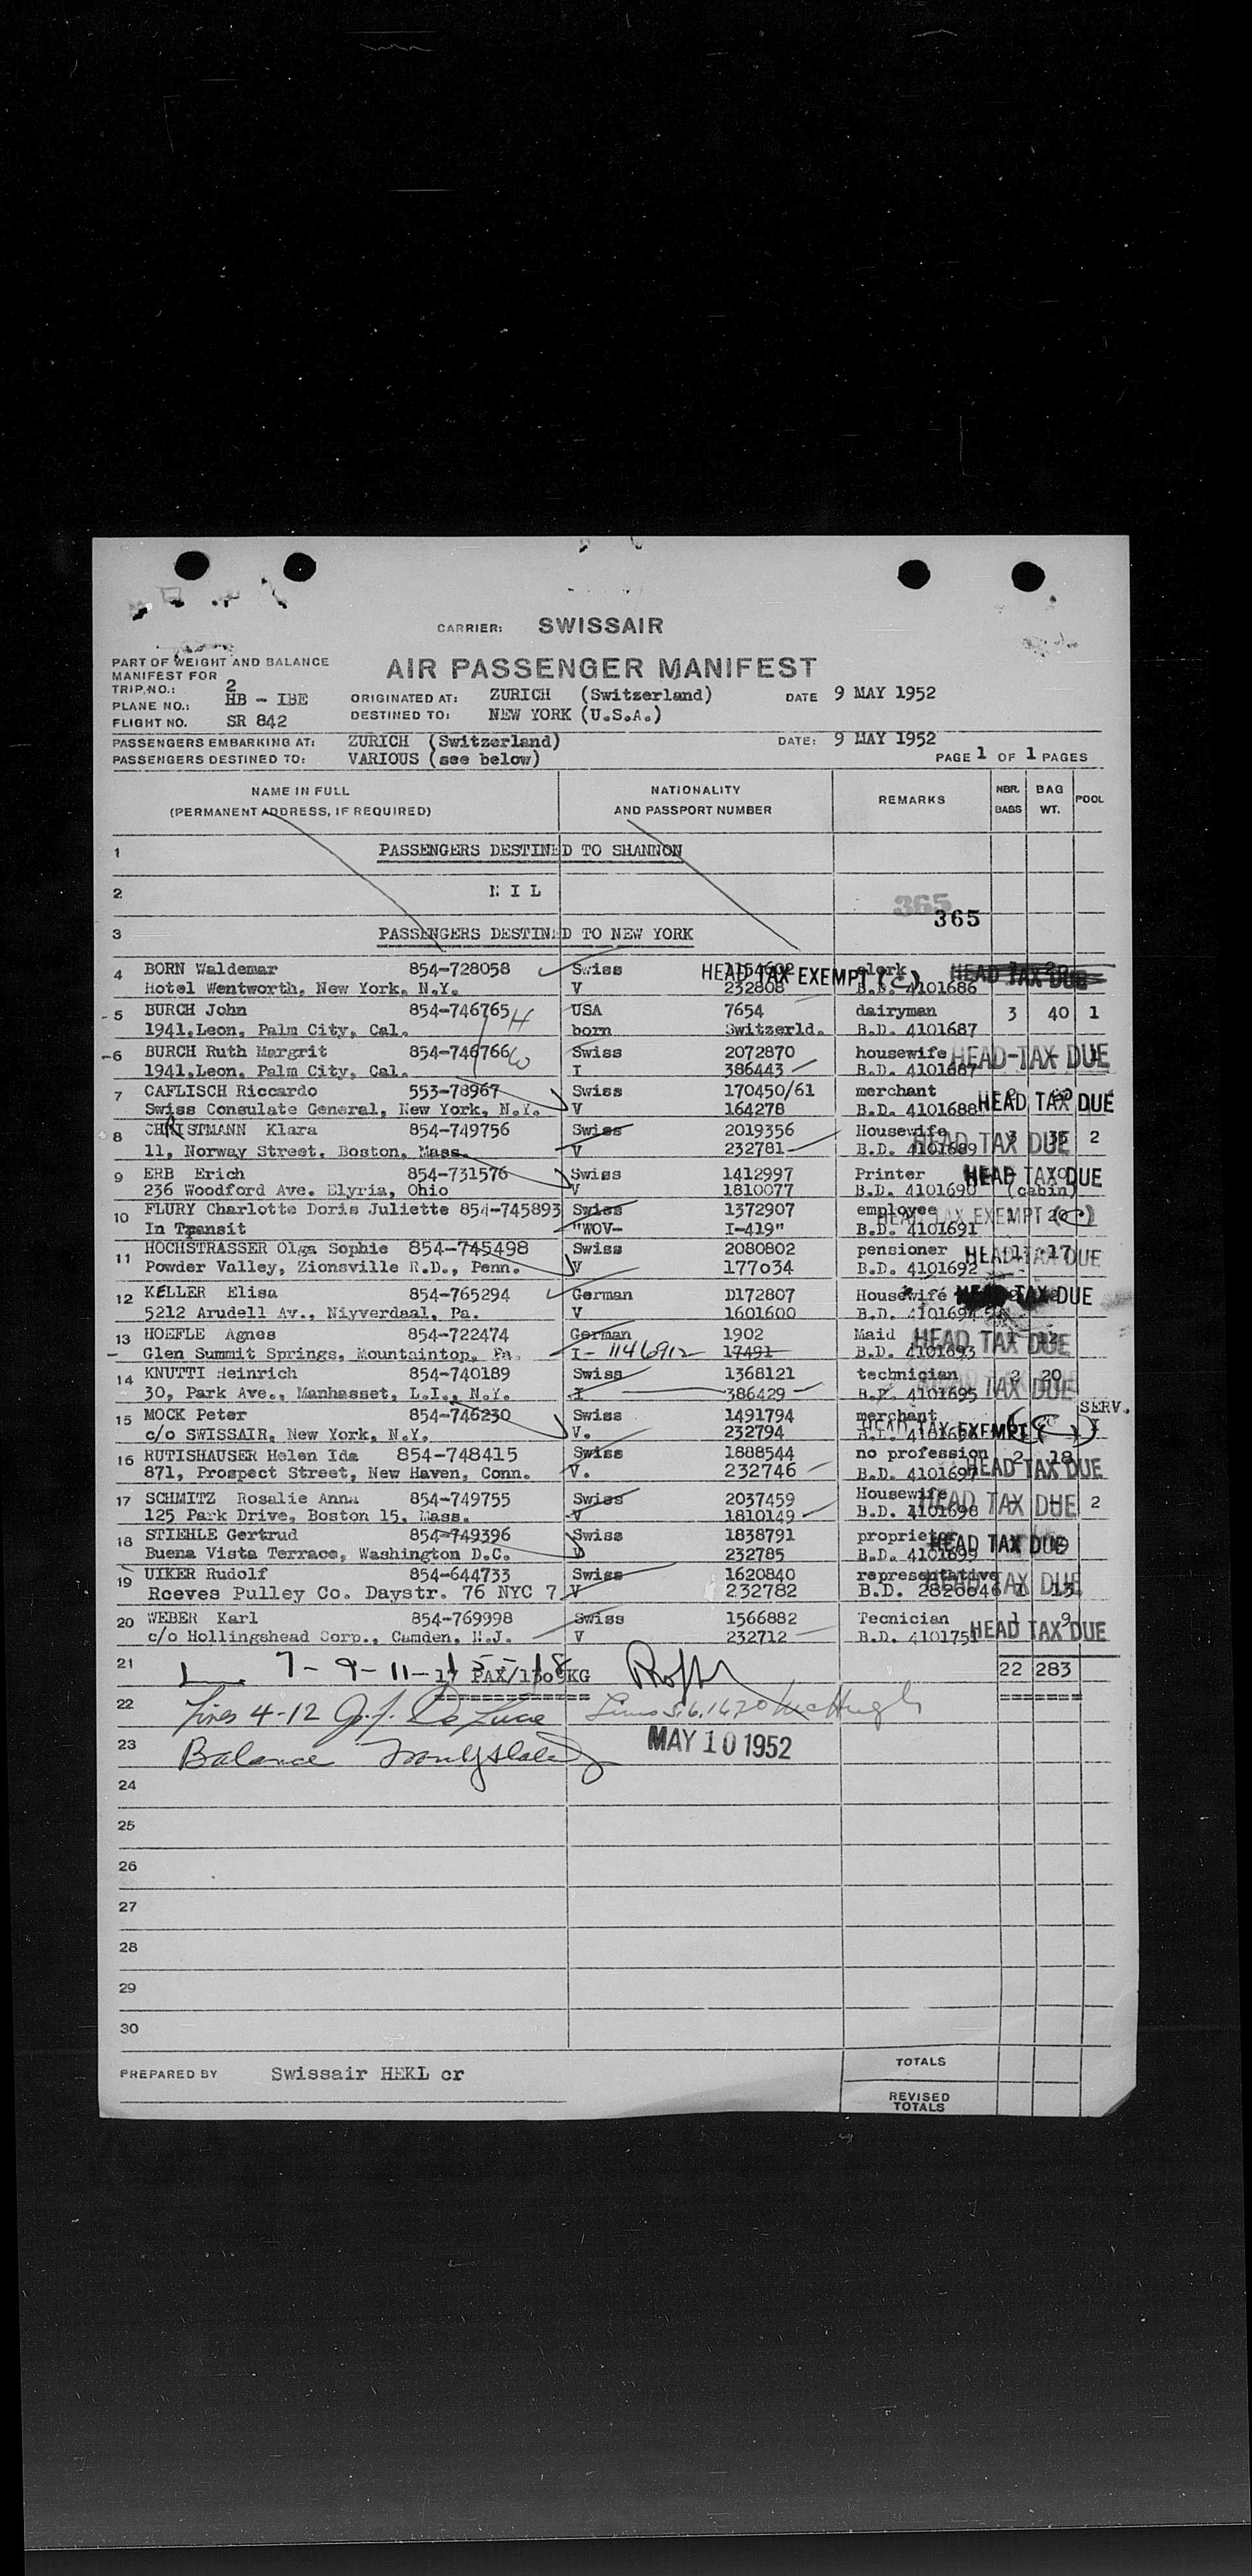 CARRIER: SWISSAIR
AIR PASSENGER MANIFEST
PART OF WEIGHT AND BALANCE
MANIFEST FOR
TRIP NO.: 2
PLANE NO.: HB - IBE
FLIGHT NO. SR 842
ORIGINATED AT: ZURICH (Switzerland) DATE 9 MAY 1952
DESTINED TO: NEW YORK (U.S.A.)
PASSENGERS EMBARKING AT: ZURICH (Switzerland) DATE: 9 MAY 1952
PASSENGERS DESTINED TO: VARIOUS (see below) PAGE 1 OF 1 PAGES
NAME IN FULL
(PERMANENT ADDRESS, IF REQUIRED)
NATIONALITY
AND PASSPORT NUMBER
REMARKS
NBR. BAGS
BAG WT.
POOL
1 PASSENGERS DESTINED TO SHANNON
2 N I L
365
365
3 PASSENGERS DESTINED TO NEW YORK
4 BORN Waldemar 854-728058 Swiss clerk
HEAD TAX EXEMPT (C) HEAD TAX DUE
Hotel Wentworth, New York, N.Y. V 232808 B.D. 4101686
5 BURCH John 854-746765 H USA 7654 dairyman 3 40 1
1941,Leon, Palm City, Cal. born Switzerld. B.D. 4101687
6 BURCH Ruth Margrit 854-746766 W Swiss 2072870 housewife HEAD TAX DUE
1941,Leon, Palm City, Cal. I 386443 B.D. 4101687
7 CAFLISCH Riccardo 553-78967 Swiss 170450/61 merchant
Swiss Consulate General, New York, N.Y. V 164278 B.D. 4101688 HEAD TAX DUE
8 CHRISTMANN Klara 854-749756 Swiss 2019356 Housewife 3 35 2
11, Norway Street, Boston, Mass. V 232781 B.D. 4101689 HEAD TAX DUE
9 ERB Erich 854-731576 Swiss 1412997 Printer HEAD TAX DUE
236 Woodford Ave. Elyria, Ohio V 1810077 B.D. 4101690 (cabin)
10 FLURY Charlotte Doris Juliette 854-745893 Swiss 1372907 employee 1 20
HEAD TAX EXEMPT (C)
In Transit "WOV- I-419" B.D. 4101691
11 HOCHSTRASSER Olga Sophie 854-745498 Swiss 2080802 pensioner 1 17 HEAD TAX DUE
Powder Valley, Zionsville R.D., Penn. V 177034 B.D. 4101692
12 KELLER Elisa 854-765294 German D172807 Housewife HEAD TAX DUE
5212 Arudell Av., Niyverdaal, Pa. V 1601600 B.D. 4101694
13 HOEFLE Agnes 854-722474 German 1902 Maid 1 12 HEAD TAX DUE
Glen Summit Springs, Mountaintop, Pa. I- 1146912 17491 B.D. 4101693
14 KNUTTI Heinrich 854-740189 Swiss 1368121 technician 2 20
30, Park Ave., Manhasset, L.I., N.Y. I 386429 B.D. 4101695 HEAD TAX DUE
SERV.
15 MOCK Peter 854-746230 Swiss 1491794 merchant
HEAD TAX EXEMPT (C)
c/o SWISSAIR, New York, N.Y. V. 232794
16 RUTISHAUSER Helen Ida 854-748415 Swiss 1888544 no profession 2 18
871, Prospect Street, New Haven, Conn. V. 232746 B.D. 4101697 HEAD TAX DUE
17 SCHMITZ Rosalie Anna 854-749755 Swiss 2037459 Housewife HEAD TAX DUE 2
125 Park Drive, Boston 15, Mass. V 1810149 B.D. 4101698
18 STIEHLE Gertrud 854-749396 Swiss 1838791 proprietor HEAD TAX DUE
Buena Vista Terrace, Washington D.C. V 232785 B.D. 4101699
19 UIKER Rudolf 854-644733 Swiss 1620840 representative HEAD TAX DUE
Reeves Pulley Co. Daystr. 76 NYC 7 V 232782 B.D. 2820046 1 13
20 WEBER Karl 854-769998 Swiss 1566882 Tecnician 1 9
c/o Hollingshead Corp., Camden, N.J. V 232712 B.D. 4101751 HEAD TAX DUE
21 L 7-9-11-15-18 17 PAX/1309KG 22 283
22 Lines 4-12 De Luca Lines 5.6.16.20 McHugh
23 Balance MAY 10 1952
24
25
26
27
28
29
30
PREPARED BY Swissair HEKL cr
TOTALS
REVISED TOTALS